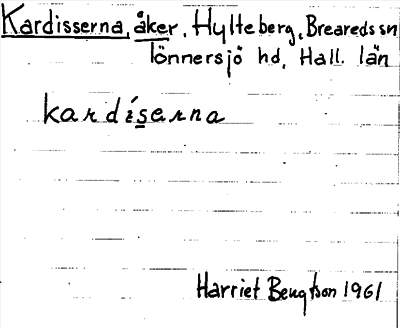 Kardisserna, åker, Hylteberg, Breareds sn
Tönnersjö hd, Hall. län
kardíserna
Harriet Bengtson 1961